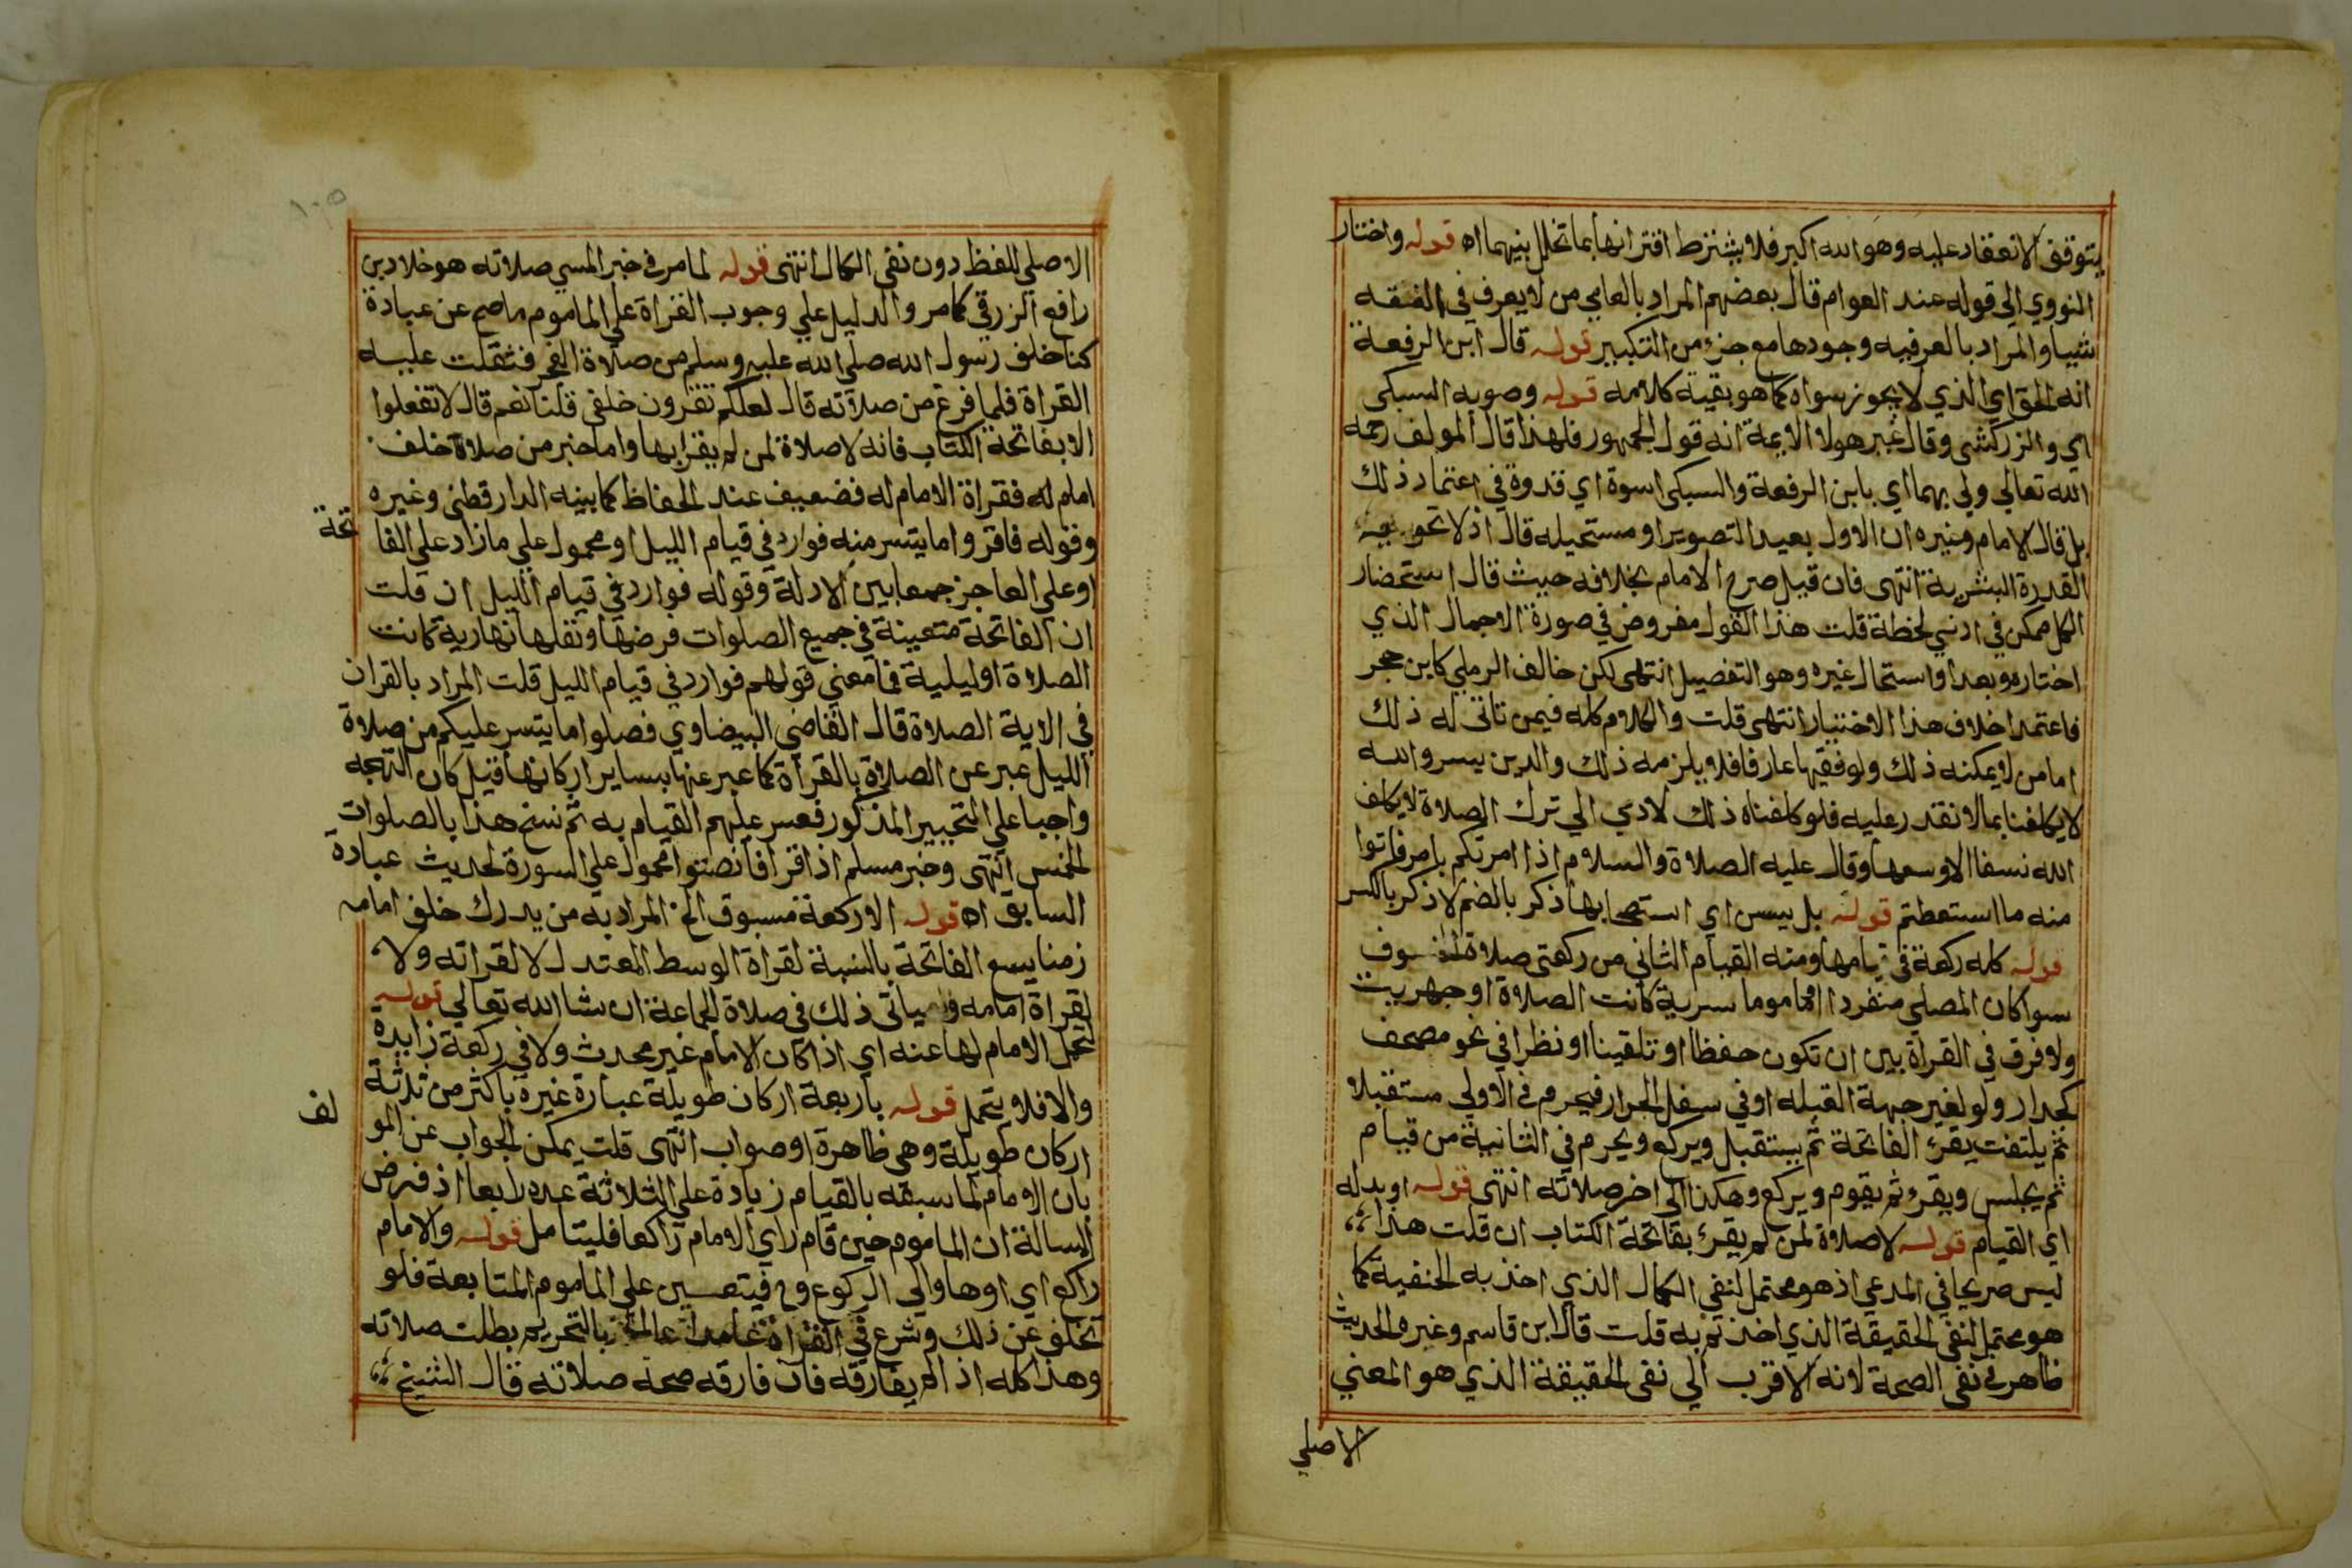 يتوقف الانعقاد عليه وهو الله اكبر فلا يشترط اقترانها بما تخلل بينهما اه قوله واختار
النووي الي قوله عند العوام قال بعضهم المراد بالعامي من لا يعرف في الفقه
شيا والمراد بالعرفيه وجودها مع جزء من التكبير قوله قال ابن الرفعة
انه الحق اي الذي لا يجوز سواه كما هو بقية كلامه قوله وصوبه السبكي
اي والزركشي وقال غير هولا الايمة انه قول الجمهور فلهذا قال المولف رحمه
الله تعالي ولي بهما اي بابن الرفعة والسبكي اسوة اي قدوة في اعتماد ذلك
بل قال الامام وغيره ان الاول بعيد التصوير او مستحيله قال اذ لا تحويه
القدرة البشرية انتهى فان قيل صرح الامام بخلافه حيث قال استحضار
الكل ممكن في ادني لحظة قلت هذا القول مفروض في صورة الاجمال الذي
اختاره وبعد او استحال غيره وهو التفصيل انتهى لكن خالف الرملي كابن حجر
فاعتمدا خلاف هذا الاختيار انتهى قلت والكلام كله فيمن تاتى له ذلك
امامن لا يمكنه ذلك ولو فقيها عارفا فلا يلزمه ذلك والدين يسر والله
لا يكلفنا بما لا نقدر عليه فلو كلفناه ذلك لادي الي ترك الصلاة لا يكلف
الله نسفا الا وسعها وقال عليه الصلاة والسلام اذا امرتكم بامر فاتوا
منه ما استطعتم قوله بل يسن اي استصحابها ذكر بالضم لا ذكر بالكسر
قوله كله ركعة في قيامها ومنه القيام الثاني من ركعتي صلاة الخسوف
سوا كان المصلي منفردا اماما موما سرية كانت الصلاة او جهريت
ولا فرق في القراة بين ان تكون حفظا او تلقينا او نظرا في نحو مصحف
كجدار ولو لغير جهة القبله او في سفل الجرار فيحرم في الاولي مستقبلا
ثم يلتفت يقرئ الفاتحة ثم يستقبل ويركع ويحرم في الثانية من قيام
ثم يجلس ويقرو ثم يقوم ويركع وهكذا الي اخر صلاته انتهى قوله او بدله
اي القيام قوله لا صلاة لمن لم يقرئ بفاتحة الكتاب ان قلت هذا
ليس صريحا في المدعي اذ هو محتمل لنفي الكمال الذي اخذ به الحنفية كما
هو محتمل لنفي الحقيقة الذي اخذتم به قلت قال ابن قاسم وغيره الحديث
ظاهر في نفي الصحة لانه الاقرب الي نفي الحقيقة الذي هو المعني
الاصلي
الاصلي للفظ دون نفي الكمال انتهى قوله لما مر في خبر المسي صلاته هو خلاد بن
رافع الزرقي كما مر والدليل علي وجوب القراة علي الماموم ما صح عن عبادة
كنا خلف رسول الله صلي الله عليه وسلم من صلاة الفجر فثقلت عليه
القراة فلما فرغ من صلاته قال لعلكم تقرون خلفي قلنا نعم قال لا تفعلوا
الا بفاتحة الكتاب فانه لا صلاة لمن لم يقرا بها واما خبر من صلاة خلف
امام له فقراة الامام له فضعيف عند الحفاظ كما بينه الدارقطني وغيره
وقوله فاقروا ما يتسر منه فوارد في قيام الليل او محمول علي ما زاد علي الفا تحة
او علي العاجز جمعا بين الادلة وقوله فوارد في قيام الليل ان قلت
ان الفاتحة متعينة في جميع الصلوات فرضها ونفلها نهارية كانت
الصلاة او ليلية فما معني قولهم فوارد في قيام الليل قلت المراد بالقران
في الاية الصلاة قال القاضي البيضاوي فصلوا ما يتسر عليكم من صلاة
الليل عبر عن الصلاة بالقراة كما عبر عنها بساير اركانها قيل كان التهجد
واجبا علي التخيير المذكور فعسر عليهم القيام به ثم نسخ هذا بالصلوات
الخمس انتهى وخبر مسلم اذا قرا فانصتوا محمول علي السورة لحديث عبادة
السابق اه قوله الا ركعة مسبوق الخ المراد به من يدرك خلف امامه
زمنا يسع الفاتحة بالنسبة لقراة الوسط المعتدل لا لقراته ولا
لقراة امامه وسياتي ذلك في صلاة الجماعة ان شا الله تعالي قوله
لتحمل الامام لها عنه اي اذا كان الامام غير محدث ولا في ركعة زايدة
والا فلا يتحمل قوله باربعة اركان طويلة عبارة غيره باكثر من ثلاثة
اركان طويلة وهي ظاهرة او صواب انتهى قلت يمكن الجواب عن المو لف
بان الامام لما سبقه بالقيام زيادة علي الثلاثة عده رابعا اذ فرض
المسالة ان الماموم حين قام راي الامام راكعا فليتامل قوله والامام
راكع اي او هاو الي الركوع وح فيتعين علي الماموم المتابعة فلو
تخلف عن ذلك وشرع في القراة عامدا عالما بالتحريم بطلت صلاته
وهذا كله اذا لم يفارقه فان فارقه صحة صلاته قال الشيخ